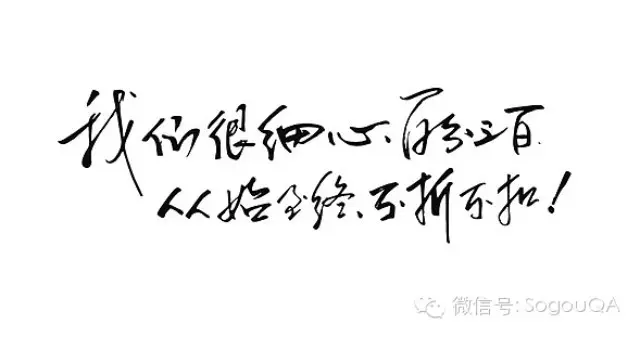 我们很细心、百分之百
从始至终、不折不扣！
微信号: SogouQA